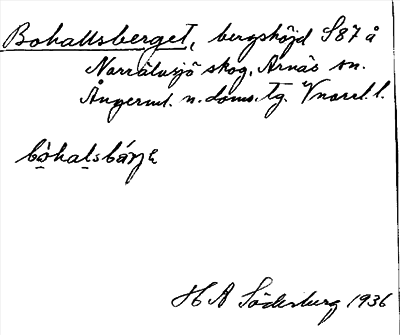 Bohallsberget, bergshöjd S87 å
Norrälvsjö skog, Arnäs sn.
Ångerml. n. doms. tg. Vnorrl. l.
bòhalsbárjɛ
H A Söderburg 1936